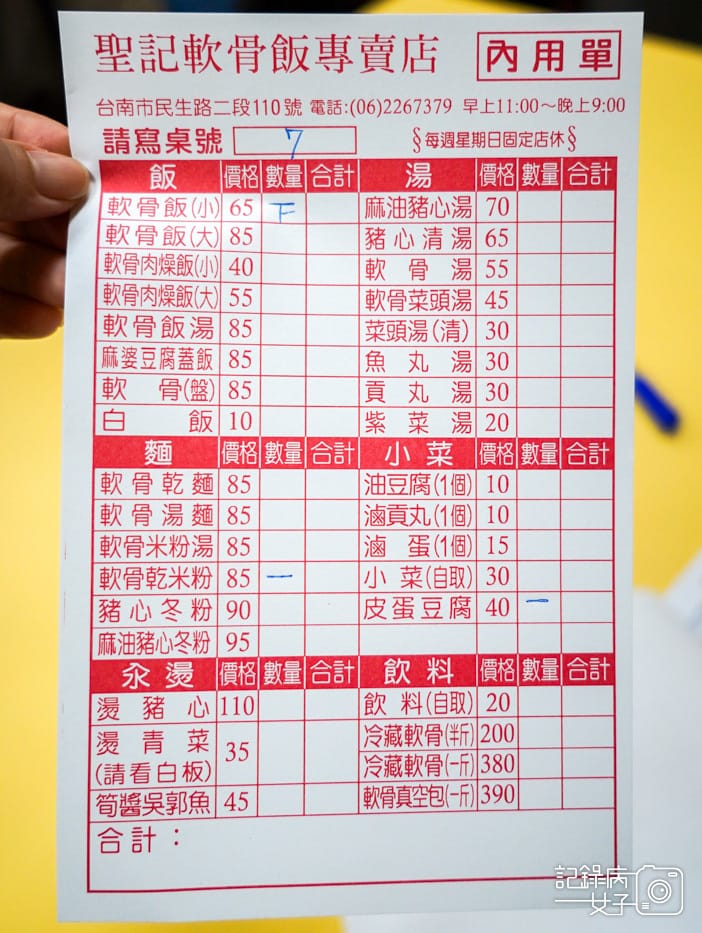 聖記軟骨飯專賣店 內用單
台南市民生路二段110號 電話:(06)2267379 早上11:00～晚上9:00
請寫桌號 7 §每週星期日固定店休§
飯 價格 數量 合計 湯 價格 數量 合計
軟骨飯(小) 65 下 麻油豬心湯 70
軟骨飯(大) 85 豬心清湯 65
軟骨肉燥飯(小) 40 軟骨湯 55
軟骨肉燥飯(大) 55 軟骨菜頭湯 45
軟骨飯湯 85 菜頭湯(清) 30
麻婆豆腐蓋飯 85 魚丸湯 30
軟骨(盤) 85 貢丸湯 30
白飯 10 紫菜湯 20
麵 價格 數量 合計 小菜 價格 數量 合計
軟骨乾麵 85 油豆腐(1個) 10
軟骨湯麵 85 滷貢丸(1個) 10
軟骨米粉湯 85 滷蛋(1個) 15
軟骨乾米粉 85 一 小菜(自取) 30
豬心冬粉 90 皮蛋豆腐 40 一
麻油豬心冬粉 95
汆燙 價格 數量 合計 飲料 價格 數量 合計
燙豬心 110 飲料(自取) 20
燙青菜 35 冷藏軟骨(半斤) 200
(請看白板) 冷藏軟骨(一斤) 380
筍醬吳郭魚 45 軟骨真空包(一斤) 390
合計：
記錄病
女子